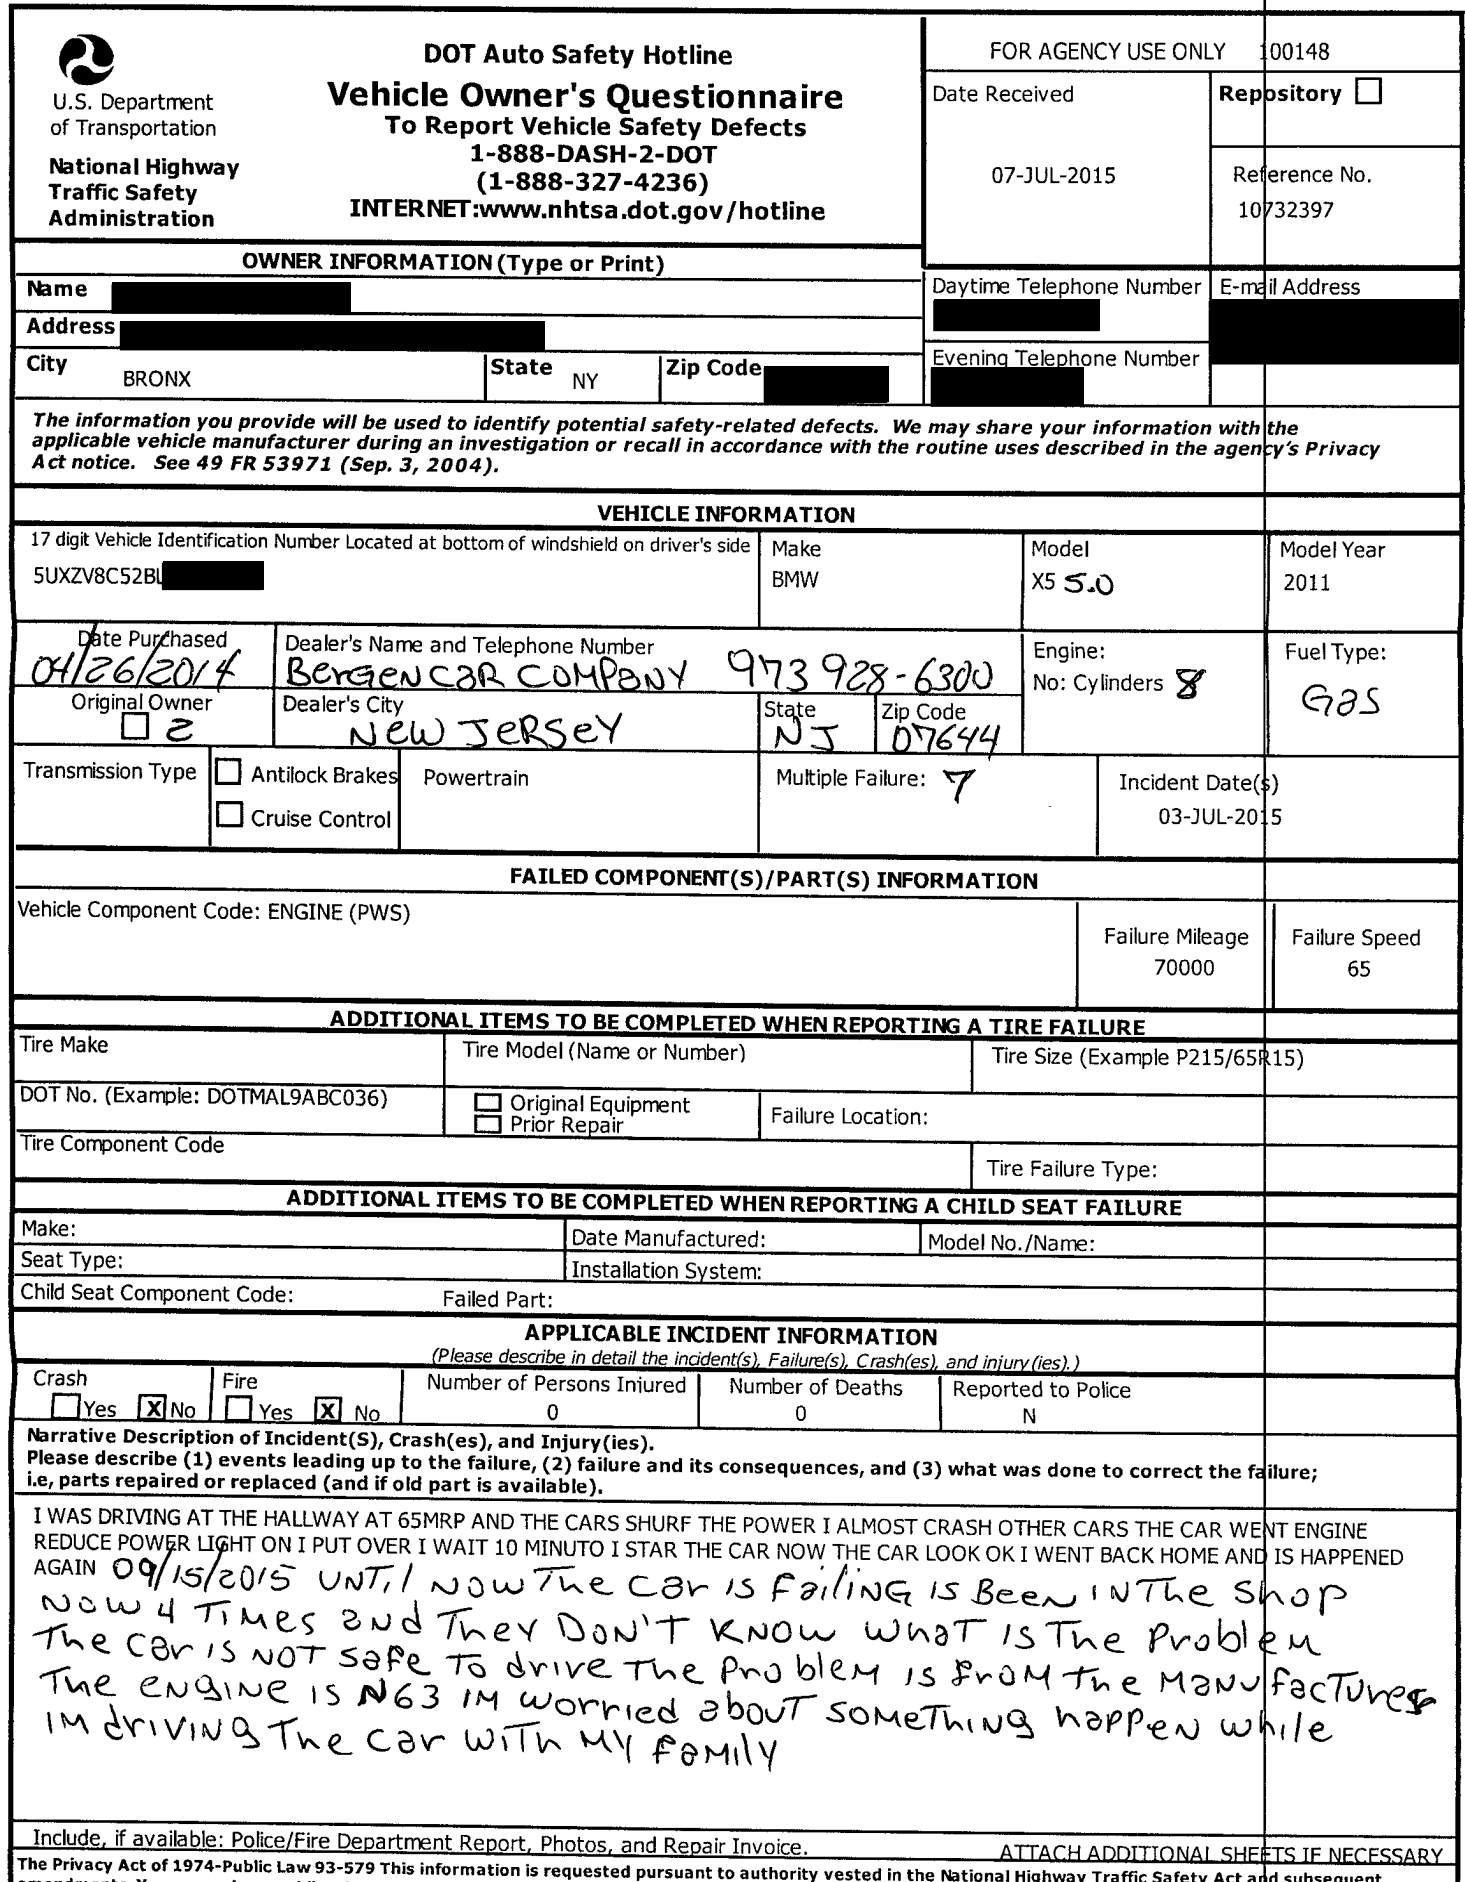 FOR AGENCY USE ONLY 100148
U.S. Department
of Transportation
National Highway
Traffic Safety
Administration
DOT Auto Safety Hotline
Vehicle Owner's Questionnaire
To Report Vehicle Safety Defects
1-888-DASH-2-DOT
(1-888-327-4236)
INTERNET:www.nhtsa.dot.gov/hotline
Date Received
07-JUL-2015
Repository
Reference No.
10732397
OWNER INFORMATION (Type or Print)
Name
Address
City BRONX State NY Zip Code
Daytime Telephone Number
E-mail Address
Evening Telephone Number
The information you provide will be used to identify potential safety-related defects. We may share your information with the
applicable vehicle manufacturer during an investigation or recall in accordance with the routine uses described in the agency's Privacy
Act notice. See 49 FR 53971 (Sep. 3, 2004).
VEHICLE INFORMATION
17 digit Vehicle Identification Number Located at bottom of windshield on driver's side
5UXZV8C52BL
Make
BMW
Model
X5 5.0
Model Year
2011
Date Purchased
04/26/2014
Dealer's Name and Telephone Number
BerGEN CaR COMPaNY 973 928-6300
Engine:
No: Cylinders 8
Fuel Type:
Gas
Original Owner
2
Dealer's City
NeW JeRSeY
State
NJ
Zip Code
07644
Transmission Type
Antilock Brakes
Cruise Control
Powertrain
Multiple Failure: 7
Incident Date(s)
03-JUL-2015
FAILED COMPONENT(S)/PART(S) INFORMATION
Vehicle Component Code: ENGINE (PWS)
Failure Mileage
70000
Failure Speed
65
ADDITIONAL ITEMS TO BE COMPLETED WHEN REPORTING A TIRE FAILURE
Tire Make
Tire Model (Name or Number)
Tire Size (Example P215/65R15)
DOT No. (Example: DOTMAL9ABC036)
Original Equipment
Prior Repair
Failure Location:
Tire Component Code
Tire Failure Type:
ADDITIONAL ITEMS TO BE COMPLETED WHEN REPORTING A CHILD SEAT FAILURE
Make:
Date Manufactured:
Model No./Name:
Seat Type:
Installation System:
Child Seat Component Code:
Failed Part:
APPLICABLE INCIDENT INFORMATION
(Please describe in detail the incident(s), Failure(s), Crash(es), and injury(ies).)
Crash
Yes X No
Fire
Yes X No
Number of Persons Injured
0
Number of Deaths
0
Reported to Police
N
Narrative Description of Incident(S), Crash(es), and Injury(ies).
Please describe (1) events leading up to the failure, (2) failure and its consequences, and (3) what was done to correct the failure;
i.e, parts repaired or replaced (and if old part is available).
I WAS DRIVING AT THE HALLWAY AT 65MRP AND THE CARS SHURF THE POWER I ALMOST CRASH OTHER CARS THE CAR WENT ENGINE
REDUCE POWER LIGHT ON I PUT OVER I WAIT 10 MINUTO I STAR THE CAR NOW THE CAR LOOK OK I WENT BACK HOME AND IS HAPPENED
AGAIN 09/15/2015 UNTil NOW The Car is FailiNG is BeeN IN The Shop
NOW 4 TiMes and They DoN'T KNOW what is The ProbleM
The Car is NOT safe To drive The ProbleM is from the Manufactures
The engiNe is N63 IM worried about SoMeThiNg happeN while
IM driViNg The Car WiTh My FaMily
Include, if available: Police/Fire Department Report, Photos, and Repair Invoice.
ATTACH ADDITIONAL SHEETS IF NECESSARY
The Privacy Act of 1974-Public Law 93-579 This information is requested pursuant to authority vested in the National Highway Traffic Safety Act and subsequent